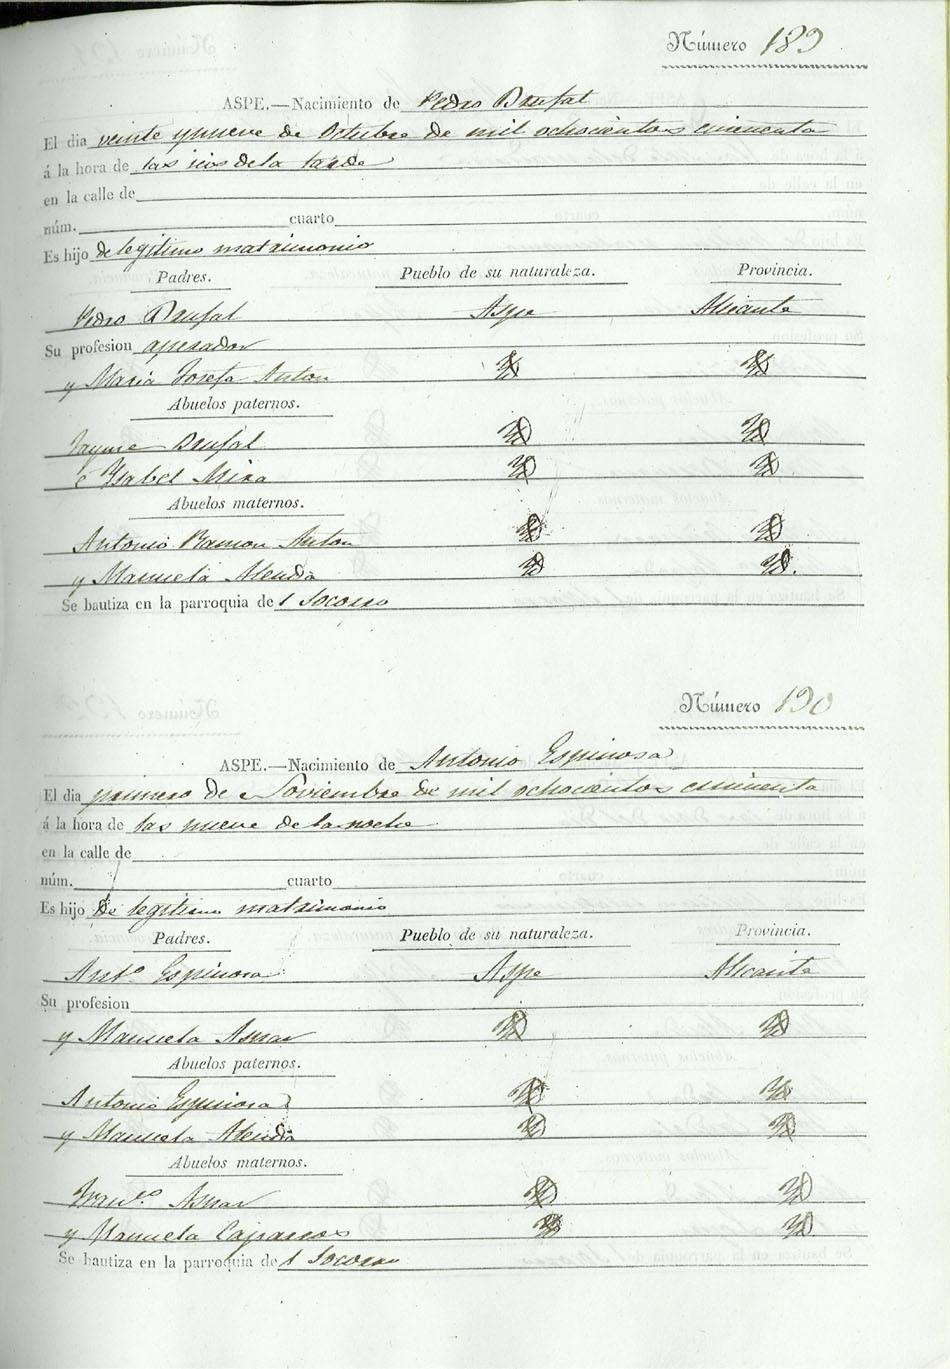 Número 189
ASPE.—Nacimiento de Pedro Brufal
El dia veinte y nueve de Octubre de mil ochocientos cincuenta
á la hora de las seis de la tarde
en la calle de
núm. cuarto
Es hijo de legitimo matrimonio
Padres. Pueblo de su naturaleza. Provincia.
Pedro Brufal Aspe Alicante
Su profesion aperador
y Maria Josefa Anton
Abuelos paternos.
Jayme Brufal
é Ysabel Mira
Abuelos maternos.
Antonio Ramon Anton
y Manuela Alenda
Se bautiza en la parroquia del Socorro
Número 190
ASPE.—Nacimiento de Antonio Espinosa
El dia primero de Noviembre de mil ochocientos cincuenta
á la hora de las nueve de la noche
en la calle de
núm. cuarto
Es hijo de legitimo matrimonio
Padres. Pueblo de su naturaleza. Provincia.
Antº Espinosa Aspe Alicante
Su profesion
y Manuela Asnar
Abuelos paternos.
Antonio Espinosa
y Manuela Alenda
Abuelos maternos.
Franco Asnar
y Manuela Caparros
Se bautiza en la parroquia del Socorro